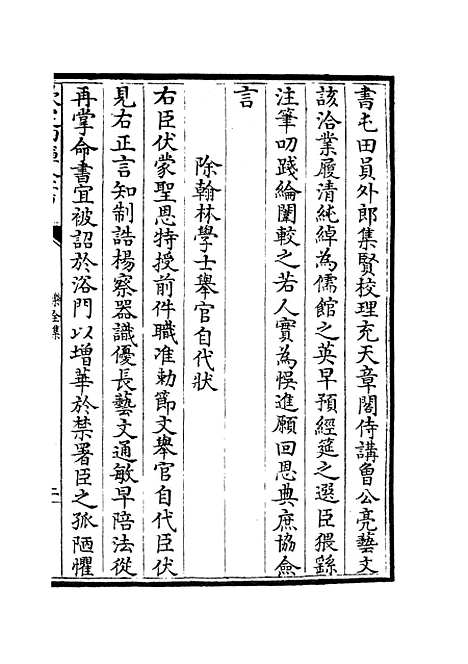 書屯田員外郎集賢校理充天章閣侍講曾公亮藝文
該洽業履清純綽為儒館之英早預經筵之選臣猥繇
注筆叨踐綸闈較之若人實為悮進願回恩典庶協僉
言
除翰林學士舉官自代狀
右臣伏蒙聖恩特授前件職准勅節文舉官自代臣伏
見右正言知制誥楊察器識優長藝文通敏早陪法從
再掌命書宜被詔於浴門以增華於禁署臣之孤陋懼
樂全集
二